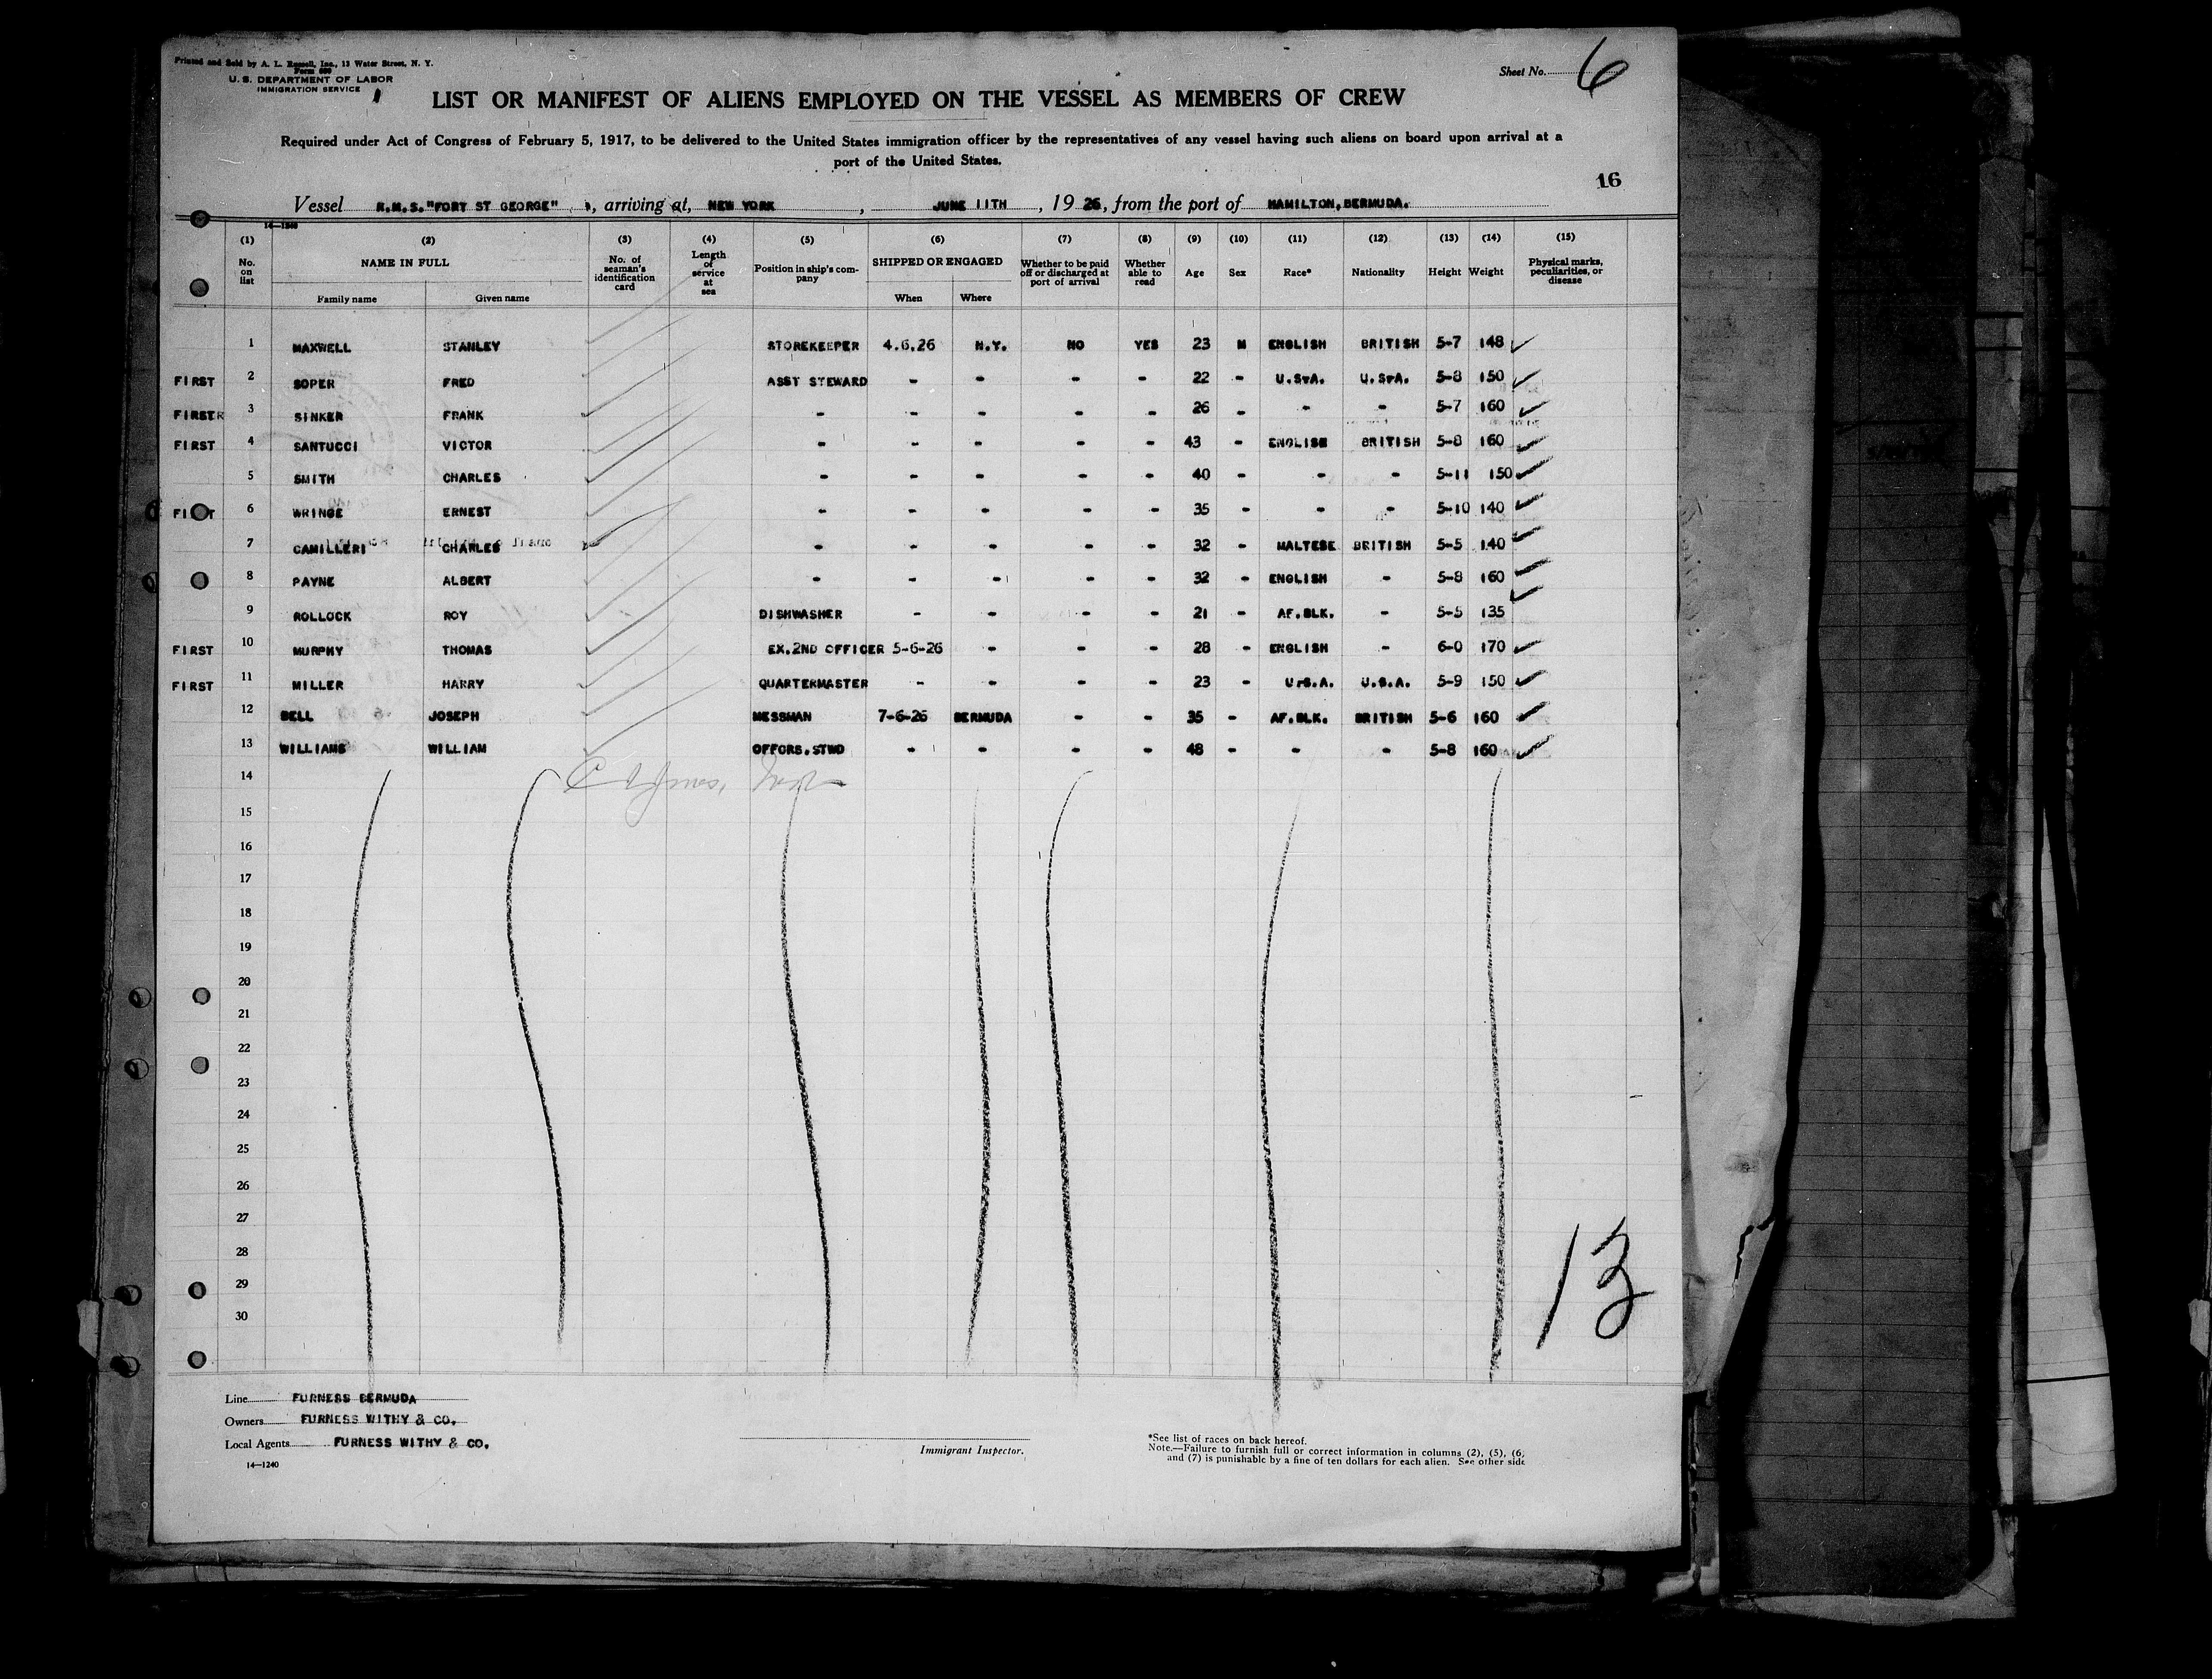 Printed and Sold by A. L. Russell, Inc., 13 Water Street, N. Y.
Form 680
U. S. DEPARTMENT OF LABOR
IMMIGRATION SERVICE
Sheet No. 6
LIST OR MANIFEST OF ALIENS EMPLOYED ON THE VESSEL AS MEMBERS OF CREW
Required under Act of Congress of February 5, 1917, to be delivered to the United States immigration officer by the representatives of any vessel having such aliens on board upon arrival at a
port of the United States.
16
Vessel R.M.S."FORT ST GEORGE" , arriving at, NEW YORK , JUNE 11TH , 19 26, from the port of HAMILTON, BERMUDA.
14—1240
(1) (2) (3) (4) (5) (6) (7) (8) (9) (10) (11) (12) (13) (14) (15)
No. on list NAME IN FULL No. of seaman's identification card Length of service at sea Position in ship's company SHIPPED OR ENGAGED Whether to be paid off or discharged at port of arrival Whether able to read Age Sex Race* Nationality Height Weight Physical marks, peculiarities, or disease
Family name Given name When Where
1 MAXWELL STANLEY STOREKEEPER 4.6.26 N.Y. NO YES 23 M ENGLISH BRITISH 5-7 148
FIRST 2 SOPER FRED ASST STEWARD - - - - 22 - U.S.A. U.S.A. 5-8 150
FIRST 3 SINKER FRANK - - - - - 26 - - - 5-7 160
FIRST 4 SANTUCCI VICTOR - - - - - 43 - ENGLISH BRITISH 5-8 160
5 SMITH CHARLES - - - - - 40 - - - 5-11 150
FIRST 6 WRINGE ERNEST - - - - - 35 - - - 5-10 140
7 CAMILLERI CHARLES - - - - - 32 - MALTESE BRITISH 5-5 140
8 PAYNE ALBERT - - - - - 32 - ENGLISH - 5-8 160
9 ROLLOCK ROY DISHWASHER - - - - 21 - AF.BLK. - 5-5 135
FIRST 10 MURPHY THOMAS EX.2ND OFFICER 5-6-26 - - - 28 - ENGLISH - 6-0 170
FIRST 11 MILLER HARRY QUARTERMASTER - - - - 23 - U.S.A. U.S.A. 5-9 150
12 BELL JOSEPH MESSMAN 7-6-26 BERMUDA - - 35 - AF.BLK. BRITISH 5-6 160
13 WILLIAMS WILLIAM OFFCRS.STWD - - - - 48 - - - 5-8 160
14
15
16
17
18
19
20
21
22
23
24
25
26
27
28
29
30
13
Line FURNESS BERMUDA
Owners FURNESS WITHY & CO.
Local Agents FURNESS WITHY & CO.
14—1240
Immigrant Inspector.
*See list of races on back hereof.
Note.—Failure to furnish full or correct information in columns (2), (5), (6,
and (7) is punishable by a fine of ten dollars for each alien. See other side